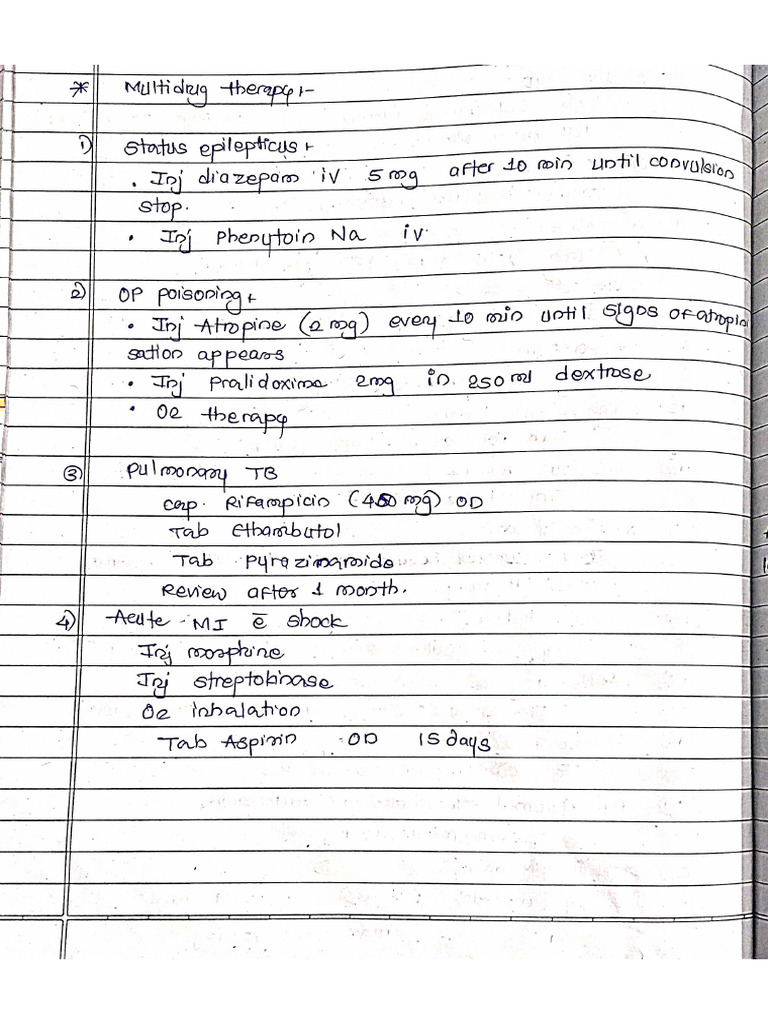 * Multidrug therapy :-
1) Status epilepticus :-
• Inj diazepam iv 5 mg after 10 min until convulsion
stop.
• Inj Phenytoin Na iv.
2) OP poisoning :-
• Inj Atropine (2 mg) every 10 min until signs of atropini
sation appears
• Inj Pralidoxime 2mg in 250 ml dextrose
• O2 therapy
3) Pulmonary TB
cap. Rifampicin (450 mg) OD
Tab Ethambutol
Tab Pyrazinamide
Review after 1 month.
4) Acute MI c̄ shock
Inj morphine
Inj streptokinase
O2 inhalation
Tab Aspirin OD 15 days